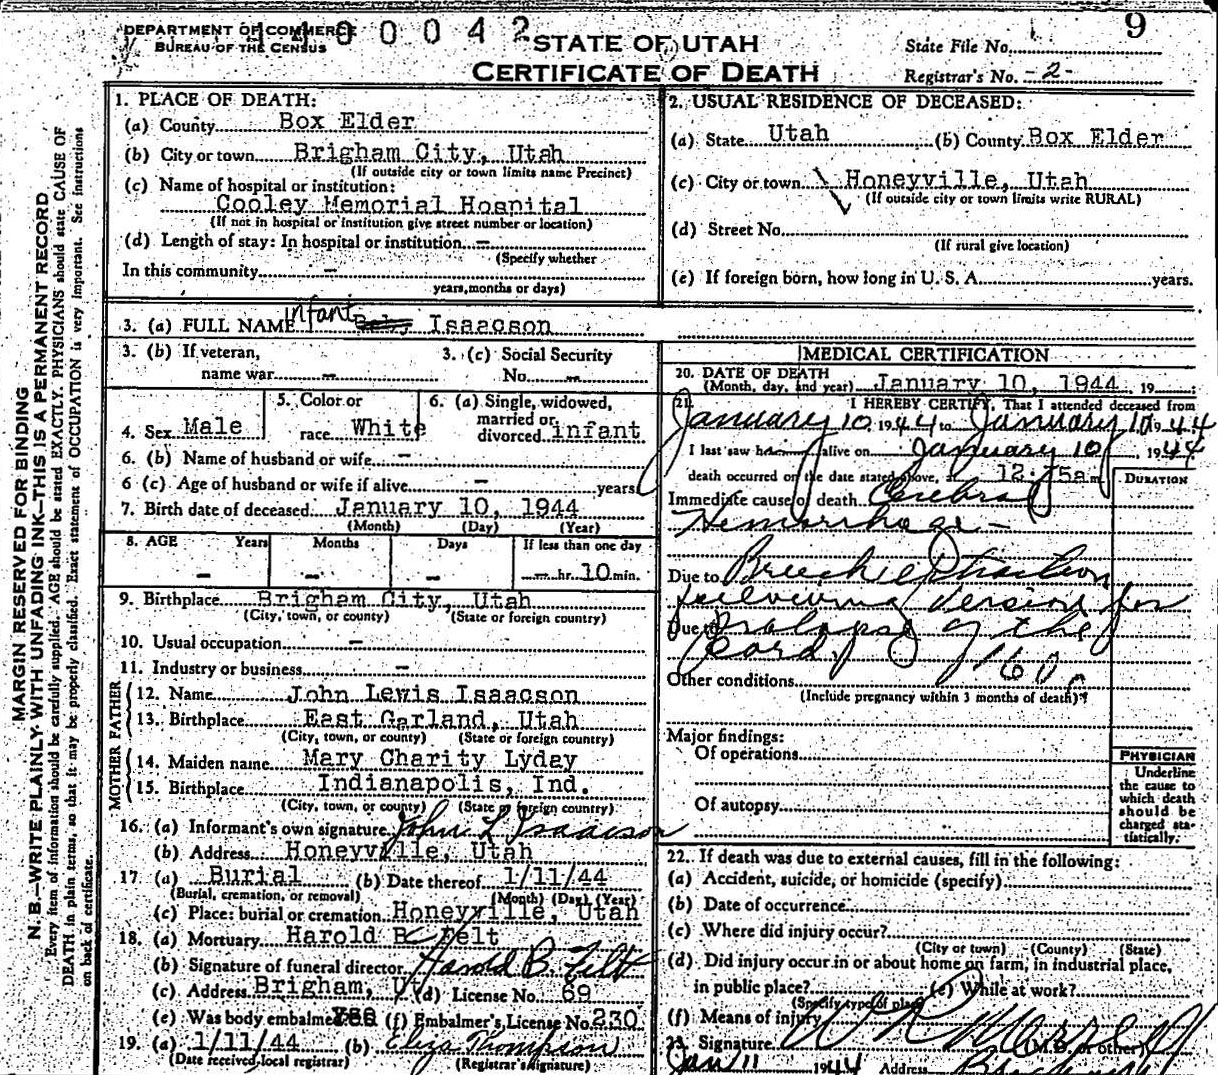 DEPARTMENT OF COMMERCE
BUREAU OF THE CENSUS
0 0 0 4 2
STATE OF UTAH
CERTIFICATE OF DEATH
9
State File No.
Registrar's No. -2-
MARGIN RESERVED FOR BINDING
N. B.—WRITE PLAINLY WITH UNFADING INK—THIS IS A PERMANENT RECORD
Every item of information should be carefully supplied. AGE should be stated EXACTLY. PHYSICIANS should state CAUSE OF
DEATH in plain terms, so that it may be properly classified. Exact statement of OCCUPATION is very important. See instructions
on back of certificate.
1. PLACE OF DEATH:
(a) County Box Elder
(b) City or town Brigham City, Utah
(If outside city or town limits name Precinct)
(c) Name of hospital or institution:
Cooley Memorial Hospital
(If not in hospital or institution give street number or location)
(d) Length of stay: In hospital or institution —
(Specify whether
In this community —
years, months or days)
2. USUAL RESIDENCE OF DECEASED:
(a) State Utah (b) County Box Elder
(c) City or town Honeyville, Utah
(If outside city or town limits write RURAL)
(d) Street No.
(If rural give location)
(e) If foreign born, how long in U. S. A. years.
3. (a) FULL NAME infant Baby Isaacson
3. (b) If veteran, 3. (c) Social Security
name war — No. —
4. Sex Male
5. Color or
race White
6. (a) Single, widowed,
married or
divorced infant
6. (b) Name of husband or wife —
6 (c) Age of husband or wife if alive — years
7. Birth date of deceased January 10, 1944
(Month) (Day) (Year)
8. AGE Years Months Days If less than one day
— — — — hr. 10 min.
9. Birthplace Brigham City, Utah
(City, town, or county) (State or foreign country)
10. Usual occupation —
11. Industry or business —
FATHER
12. Name John Lewis Isaacson
13. Birthplace East Garland, Utah
(City, town, or county) (State or foreign country)
MOTHER
14. Maiden name Mary Charity Lyday
15. Birthplace Indianapolis, Ind.
(City, town, or county) (State or foreign country)
16. (a) Informant's own signature John L Isaacson
(b) Address Honeyville, Utah
17. (a) Burial (b) Date thereof 1/11/44
(Burial, cremation, or removal) (Month) (Day) (Year)
(c) Place: burial or cremation Honeyville, Utah
18. (a) Mortuary Harold B Felt
(b) Signature of funeral director Harold B. Felt
(c) Address Brigham, Ut (d) License No. 69
(e) Was body embalmed (f) Embalmer's License No. 230
19. (a) 1/11/44 (b) Eliza Thompson
(Date received local registrar) (Registrar's signature)
MEDICAL CERTIFICATION
20. DATE OF DEATH
(Month, day, and year) January 10, 1944, 19
21. I HEREBY CERTIFY, That I attended deceased from
January 10 1944 to January 10 1944
I last saw h alive on January 10, 1944
death occurred on the date stated above, at 12:15a m
DURATION
Immediate cause of death Cerebral
Hemorrhage —
Due to Breech extraction
following version for
Due to Prolapse of the
Cord.
160
Other conditions
(Include pregnancy within 3 months of death)
Major findings:
Of operations
Of autopsy
PHYSICIAN
Underline
the cause to
which death
should be
charged sta-
tistically.
22. If death was due to external causes, fill in the following:
(a) Accident, suicide, or homicide (specify)
(b) Date of occurrence
(c) Where did injury occur?
(City or town) (County) (State)
(d) Did injury occur in or about home on farm, in industrial place,
in public place? (e) While at work?
(Specify type of place)
(f) Means of injury
23. Signature (M.D. or other)
Jan 11 1944 Address